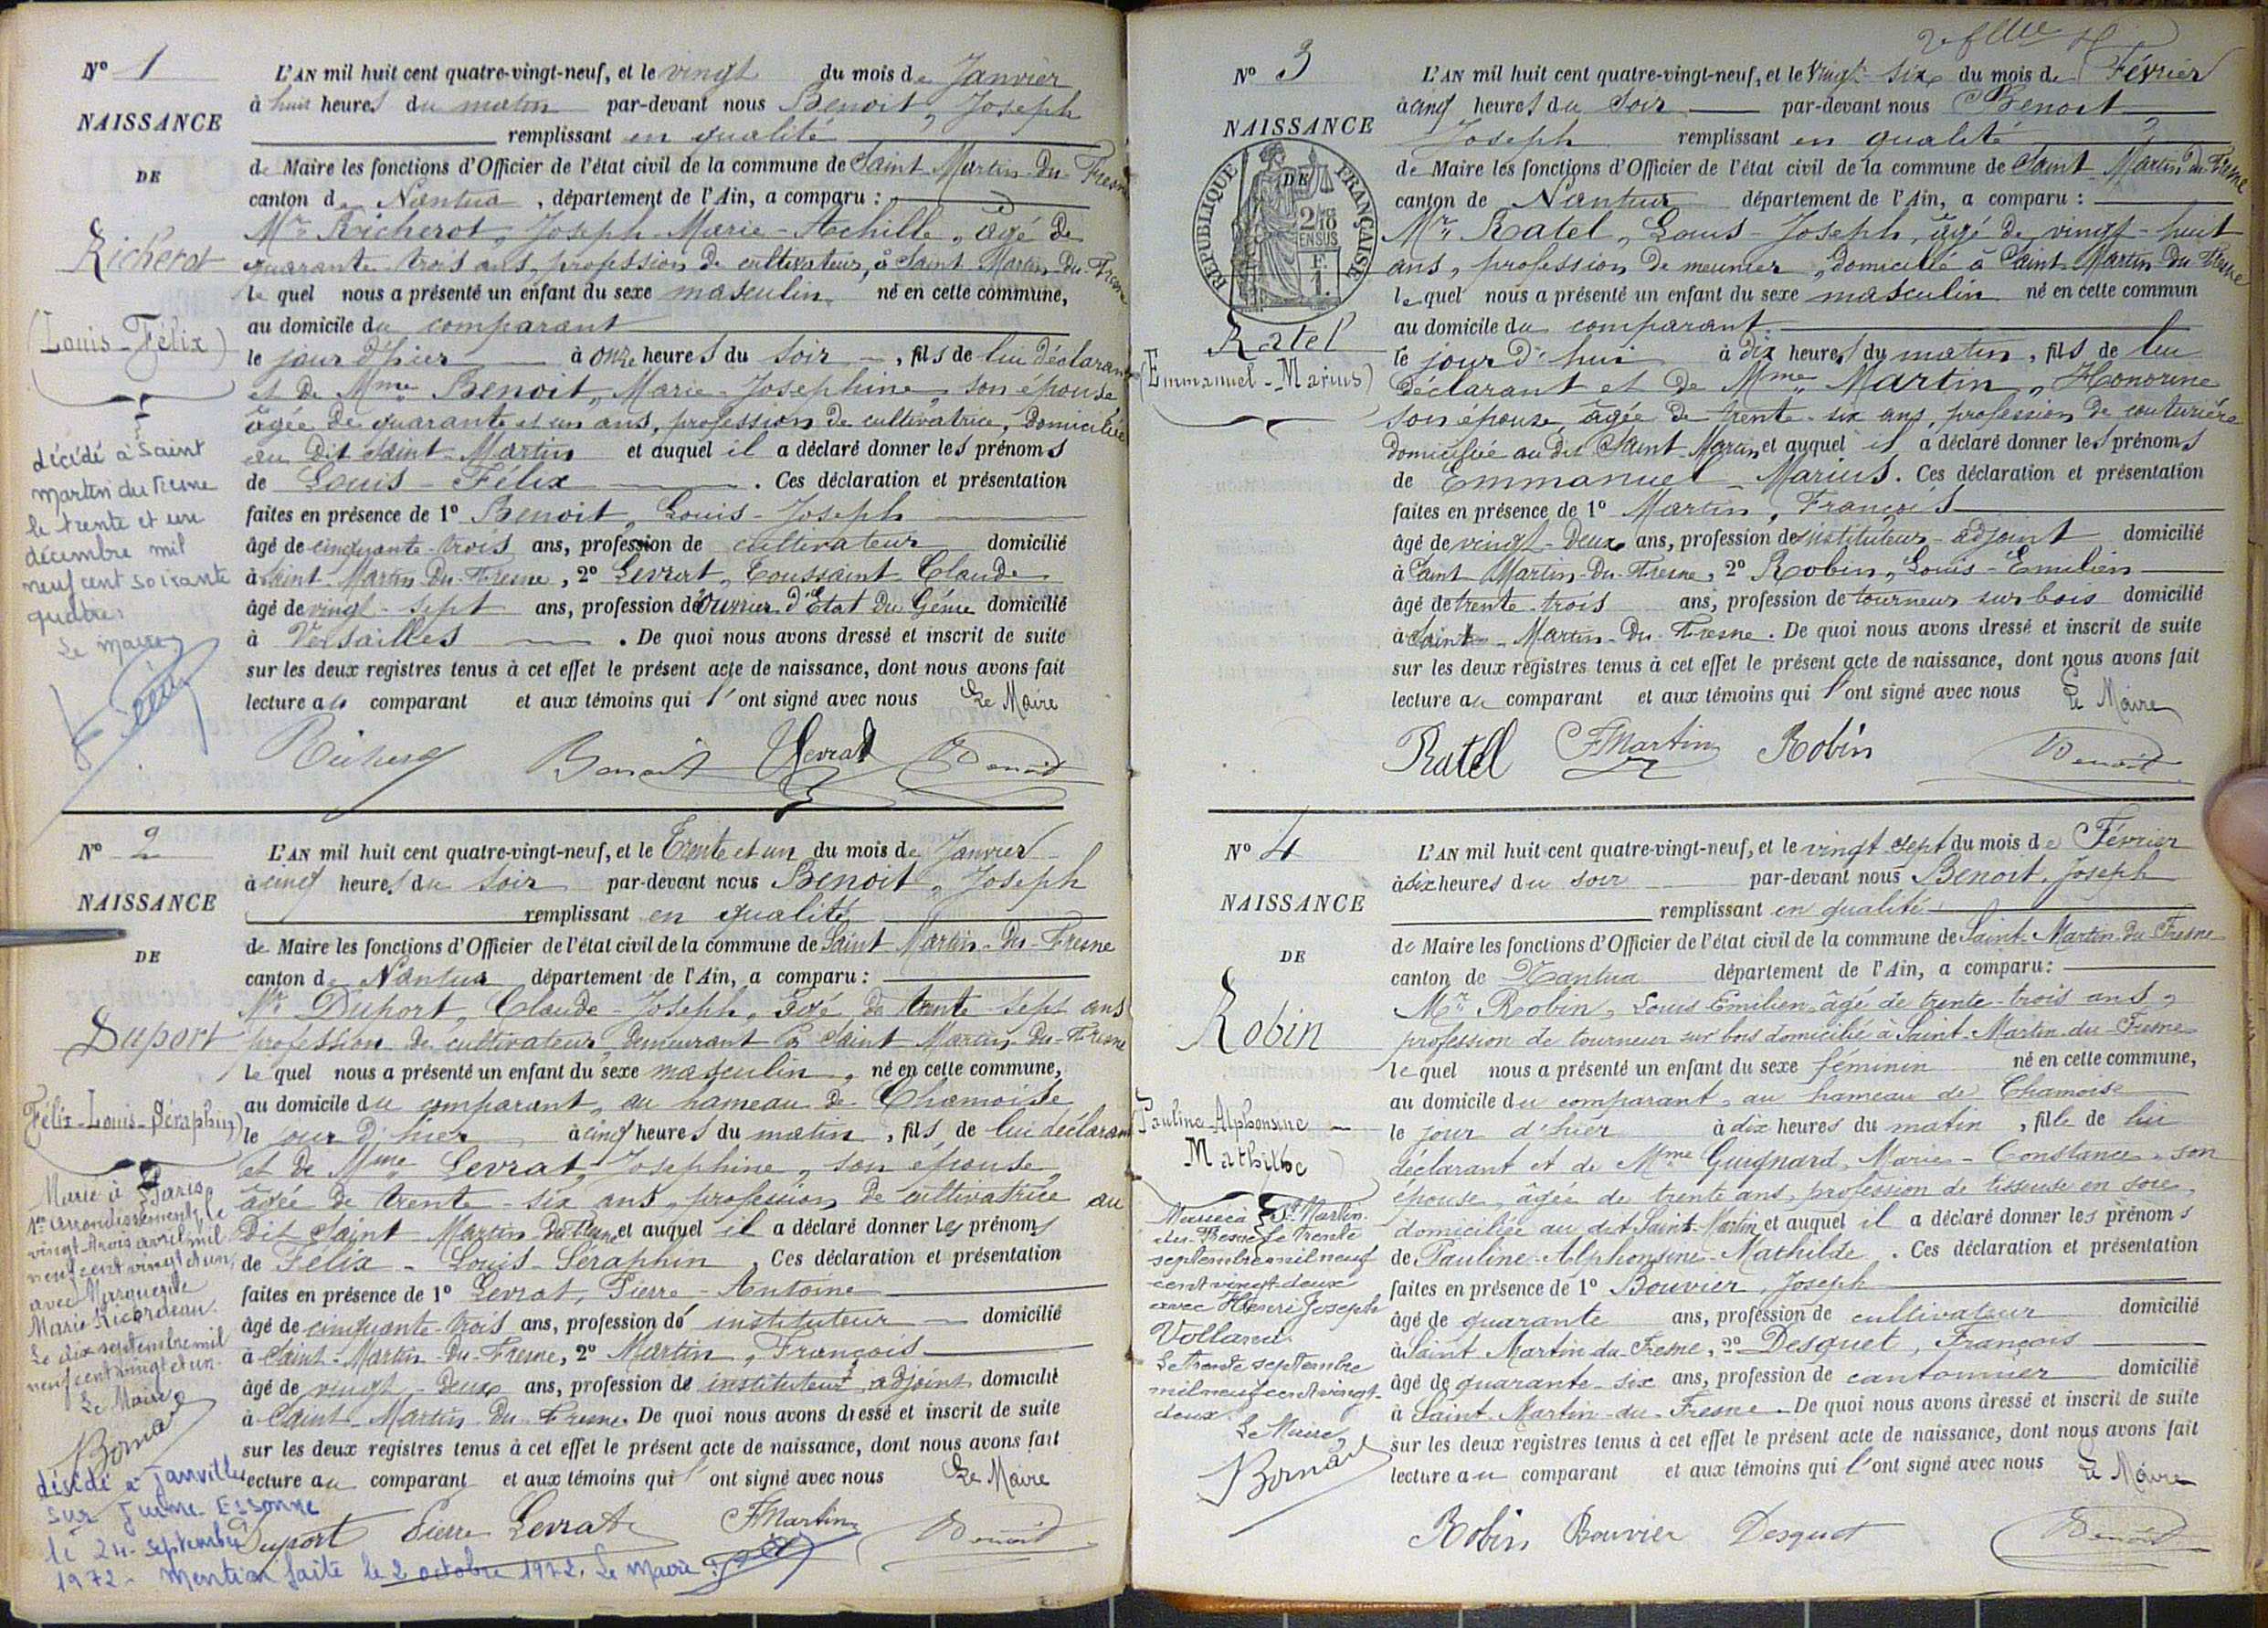 N° 1
NAISSANCE
DE
Richerot
(Louis-Félix)
décédé à Saint
Martin du Fresne
le trente et un
décembre mil
neuf cent soixante
quatre.
Le maire
L'AN mil huit cent quatre-vingt-neuf, et le vingt du mois de Janvier
à huit heures du matin par-devant nous Benoit, Joseph
remplissant en qualité
de Maire les fonctions d'Officier de l'état civil de la commune de Saint-Martin-du-Fresne
canton de Nantua, département de l'Ain, a comparu :
Mr Richerot, Joseph-Marie-Achille, âgé de
quarante-trois ans, profession de cultivateur, à Saint Martin-du-Fresne
lequel nous a présenté un enfant du sexe masculin né en cette commune,
au domicile du comparant
le jour d'hier à onze heures du soir, fils de lui déclarant
et de Mme Benoit, Marie-Josephine, son épouse
âgée de quarante et un ans, profession de cultivatrice, domiciliée
au dit Saint-Martin et auquel il a déclaré donner les prénoms
de Louis-Félix. Ces déclaration et présentation
faites en présence de 1° Benoit, Louis-Joseph
âgé de cinquante-trois ans, profession de cultivateur domicilié
à Saint-Martin-du-Fresne, 2° Levrat, Toussaint Claude
âgé de vingt-sept ans, profession de Ouvrier d'Etat du Génie domicilié
à Versailles. De quoi nous avons dressé et inscrit de suite
sur les deux registres tenus à cet effet le présent acte de naissance, dont nous avons fait
lecture au comparant et aux témoins qui l'ont signé avec nous Le Maire
Richerot Benoit Levrat Benoit
N° 2
NAISSANCE
DE
Duport
(Félix-Louis-Séraphin)
Marié à Paris
1er arrondissement, le
vingt-trois avril mil
neuf cent vingt et un,
avec Marguerite
Marie Ricordeau.
Le dix septembre mil
neuf cent vingt et un.
Le Maire
décédé à Janville
sur Juine Essonne
le 24 septembre
1972 - Mention faite le 2 octobre 1972. Le Maire :
L'AN mil huit cent quatre-vingt-neuf, et le Trente et un du mois de Janvier
à cinq heures du soir par-devant nous Benoit, Joseph
remplissant en qualité
de Maire les fonctions d'Officier de l'état civil de la commune de Saint-Martin-du-Fresne
canton de Nantua département de l'Ain, a comparu :
Mr Duport, Claude-Joseph, âgé de trente-sept ans
profession de cultivateur, demeurant à Saint Martin-du-Fresne
lequel nous a présenté un enfant du sexe masculin, né en cette commune,
au domicile du comparant, au hameau de Chamoise
le jour d'hier à cinq heures du matin, fils de lui déclarant
et de Mme Levrat, Josephine, son épouse,
âgée de trente-six ans, profession de cultivatrice au
dit Saint Martin du Fresne et auquel il a déclaré donner les prénoms
de Félix-Louis-Séraphin. Ces déclaration et présentation
faites en présence de 1° Levrat, Pierre-Antoine
âgé de cinquante-trois ans, profession de instituteur domicilié
à Saint-Martin-du-Fresne, 2° Martin, François
âgé de vingt-deux ans, profession de instituteur adjoint domicilié
à Saint-Martin-du-Fresne. De quoi nous avons dressé et inscrit de suite
sur les deux registres tenus à cet effet le présent acte de naissance, dont nous avons fait
lecture au comparant et aux témoins qui l'ont signé avec nous Le Maire
Duport Pierre Levrat FMartin Benoit
N° 3
NAISSANCE
DE
RÉPUBLIQUE FRANÇAISE
Ratel
(Emmanuel-Marius)
L'AN mil huit cent quatre-vingt-neuf, et le vingt-six du mois de Février
à cinq heures du soir par-devant nous Benoit
Joseph remplissant en qualité
de Maire les fonctions d'Officier de l'état civil de la commune de Saint-Martin-du-Fresne
canton de Nantua département de l'Ain, a comparu :
Mr Ratel, Louis-Joseph, âgé de vingt-huit
ans, profession de meunier, domicilié à Saint-Martin du Fresne
lequel nous a présenté un enfant du sexe masculin né en cette commun
au domicile du comparant.
le jour d'hui à dix heures du matin, fils de lui
déclarant et de Mme Martin, Honorine
son épouse, âgée de trente-six ans, profession de couturière
domiciliée au dit Saint-Martin et auquel il a déclaré donner les prénoms
de Emmanuel-Marius. Ces déclaration et présentation
faites en présence de 1° Martin, François
âgé de vingt-deux ans, profession de instituteur-adjoint domicilié
à Saint Martin-du-Fresne, 2° Robin, Louis-Emilien
âgé de trente-trois ans, profession de tourneur sur bois domicilié
à Saint-Martin-du-Fresne. De quoi nous avons dressé et inscrit de suite
sur les deux registres tenus à cet effet le présent acte de naissance, dont nous avons fait
lecture au comparant et aux témoins qui l'ont signé avec nous Le Maire
Ratel FMartin Robin Benoit
N° 4
NAISSANCE
DE
Robin
(Pauline-Alphonsine
Mathilde)
Mariée à St Martin-
du-Fresne le trente
septembre mil neuf
cent vingt deux
avec Henri Joseph
Volland.
Le trente septembre
mil neuf cent vingt-
deux.
Le Maire
L'AN mil huit cent quatre-vingt-neuf, et le vingt sept du mois de Février
à six heures du soir par-devant nous Benoit, Joseph
remplissant en qualité
de Maire les fonctions d'Officier de l'état civil de la commune de Saint-Martin-du-Fresne
canton de Nantua département de l'Ain, a comparu :
Mr Robin, Louis Emilien, âgé de trente-trois ans,
profession de tourneur sur bois domicilié à Saint-Martin-du-Fresne
lequel nous a présenté un enfant du sexe féminin né en cette commune,
au domicile du comparant, au hameau de Chamoise
le jour d'hier à dix heures du matin, fille de lui
déclarant et de Mme Guignard, Marie-Constance, son
épouse, âgée de trente ans, profession de tisseuse en soie,
domiciliée au dit Saint-Martin et auquel il a déclaré donner les prénoms
de Pauline-Alphonsine-Mathilde. Ces déclaration et présentation
faites en présence de 1° Bouvier, Joseph
âgé de quarante ans, profession de cultivateur domicilié
à Saint Martin-du-Fresne, 2° Desquet, François
âgé de quarante-six ans, profession de cantonnier domicilié
à Saint-Martin-du-Fresne. De quoi nous avons dressé et inscrit de suite
sur les deux registres tenus à cet effet le présent acte de naissance, dont nous avons fait
lecture au comparant et aux témoins qui l'ont signé avec nous Le Maire
Robin Bouvier Desquet Benoit